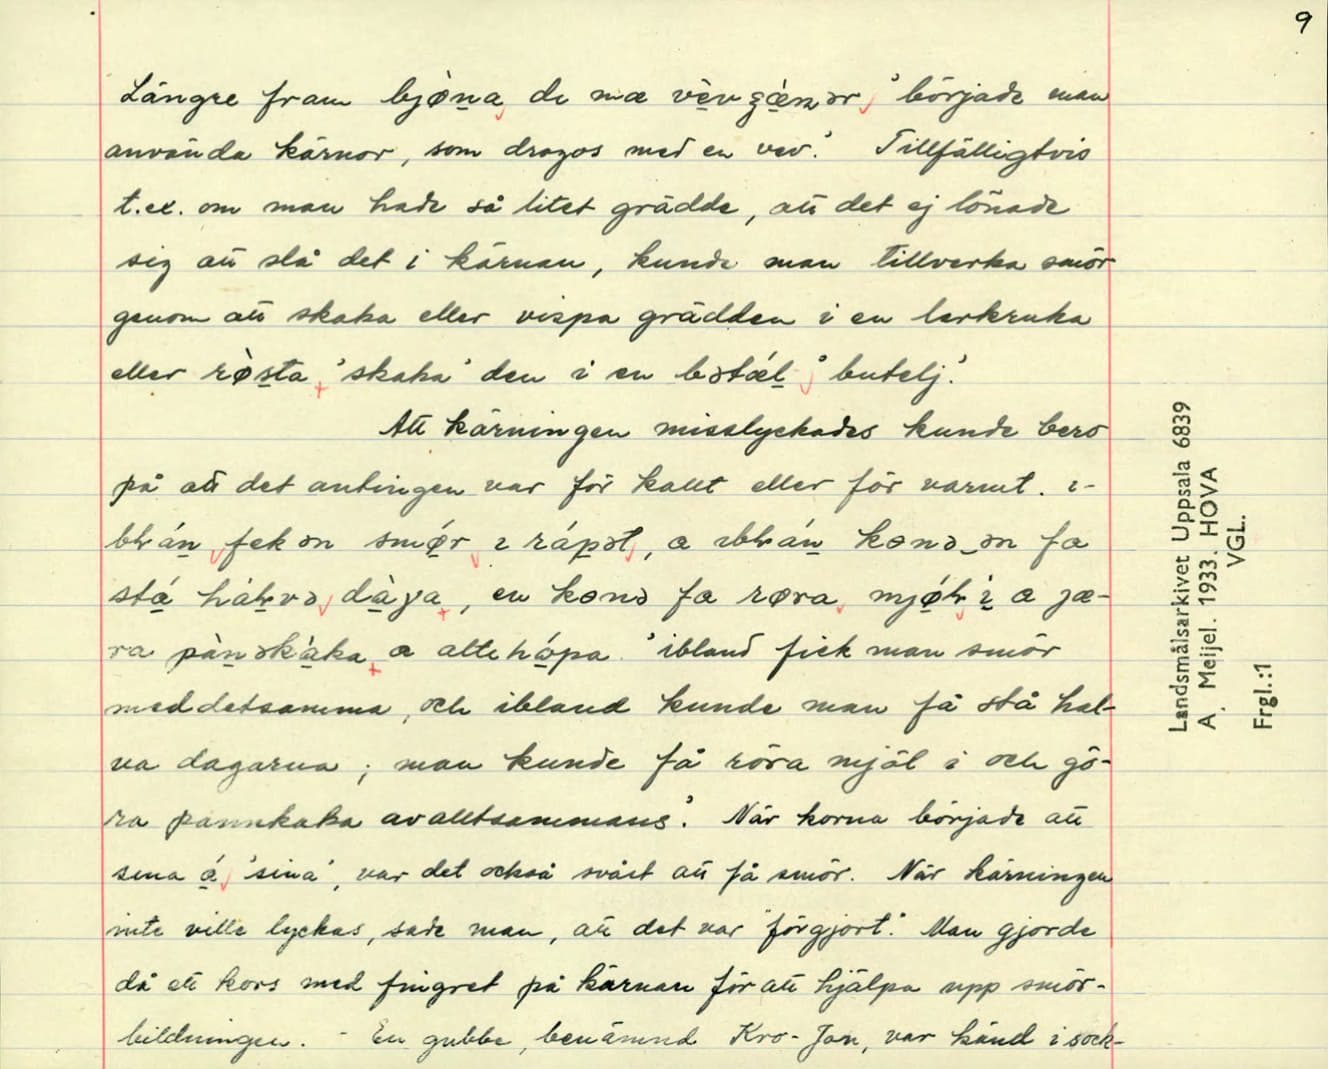 9
Längre fram bjø̀na de mæ vèvçǽnər, 'började man
använda kärnor, som drogos med en vev.' Tillfälligtvis
t.ex. om man hade så litet grädde, att det ej lönade
sig att slå det i kärnan, kunde man tillverka smör
genom att skaka eller vispa grädden i en lerkruka
eller rø̀sta 'skaka' den i en bətǽl 'butelj'.
Att kärningen misslyckades kunde bero
på att det antingen var för kallt eller för varmt. ı-
fek ən smǿr ı rápət, a kənə ən fa
stá dàga, en kənə fa røra ì a jæ-
ra pànəkàka a altehópa. 'ibland fick man smör
meddetsamma, och ibland kunde man få stå hal-
va dagarna; man kunde få röra mjöl i och gö-
ra pannkaka avalltsammans'. När korna började att
sina á 'sina', var det också svårt att få smör. När kärningen
inte ville lyckas, sade man, att det var "förgjort." Man gjorde
då ett kors med fingret på kärnan för att hjälpa upp smör-
bildningen. - En gubbe, benämnd Kro-Jan, var känd i sock-
Landsmålsarkivet Uppsala 6839
A. Meijel. 1933. HOVA
VGL.
Frgl.:1